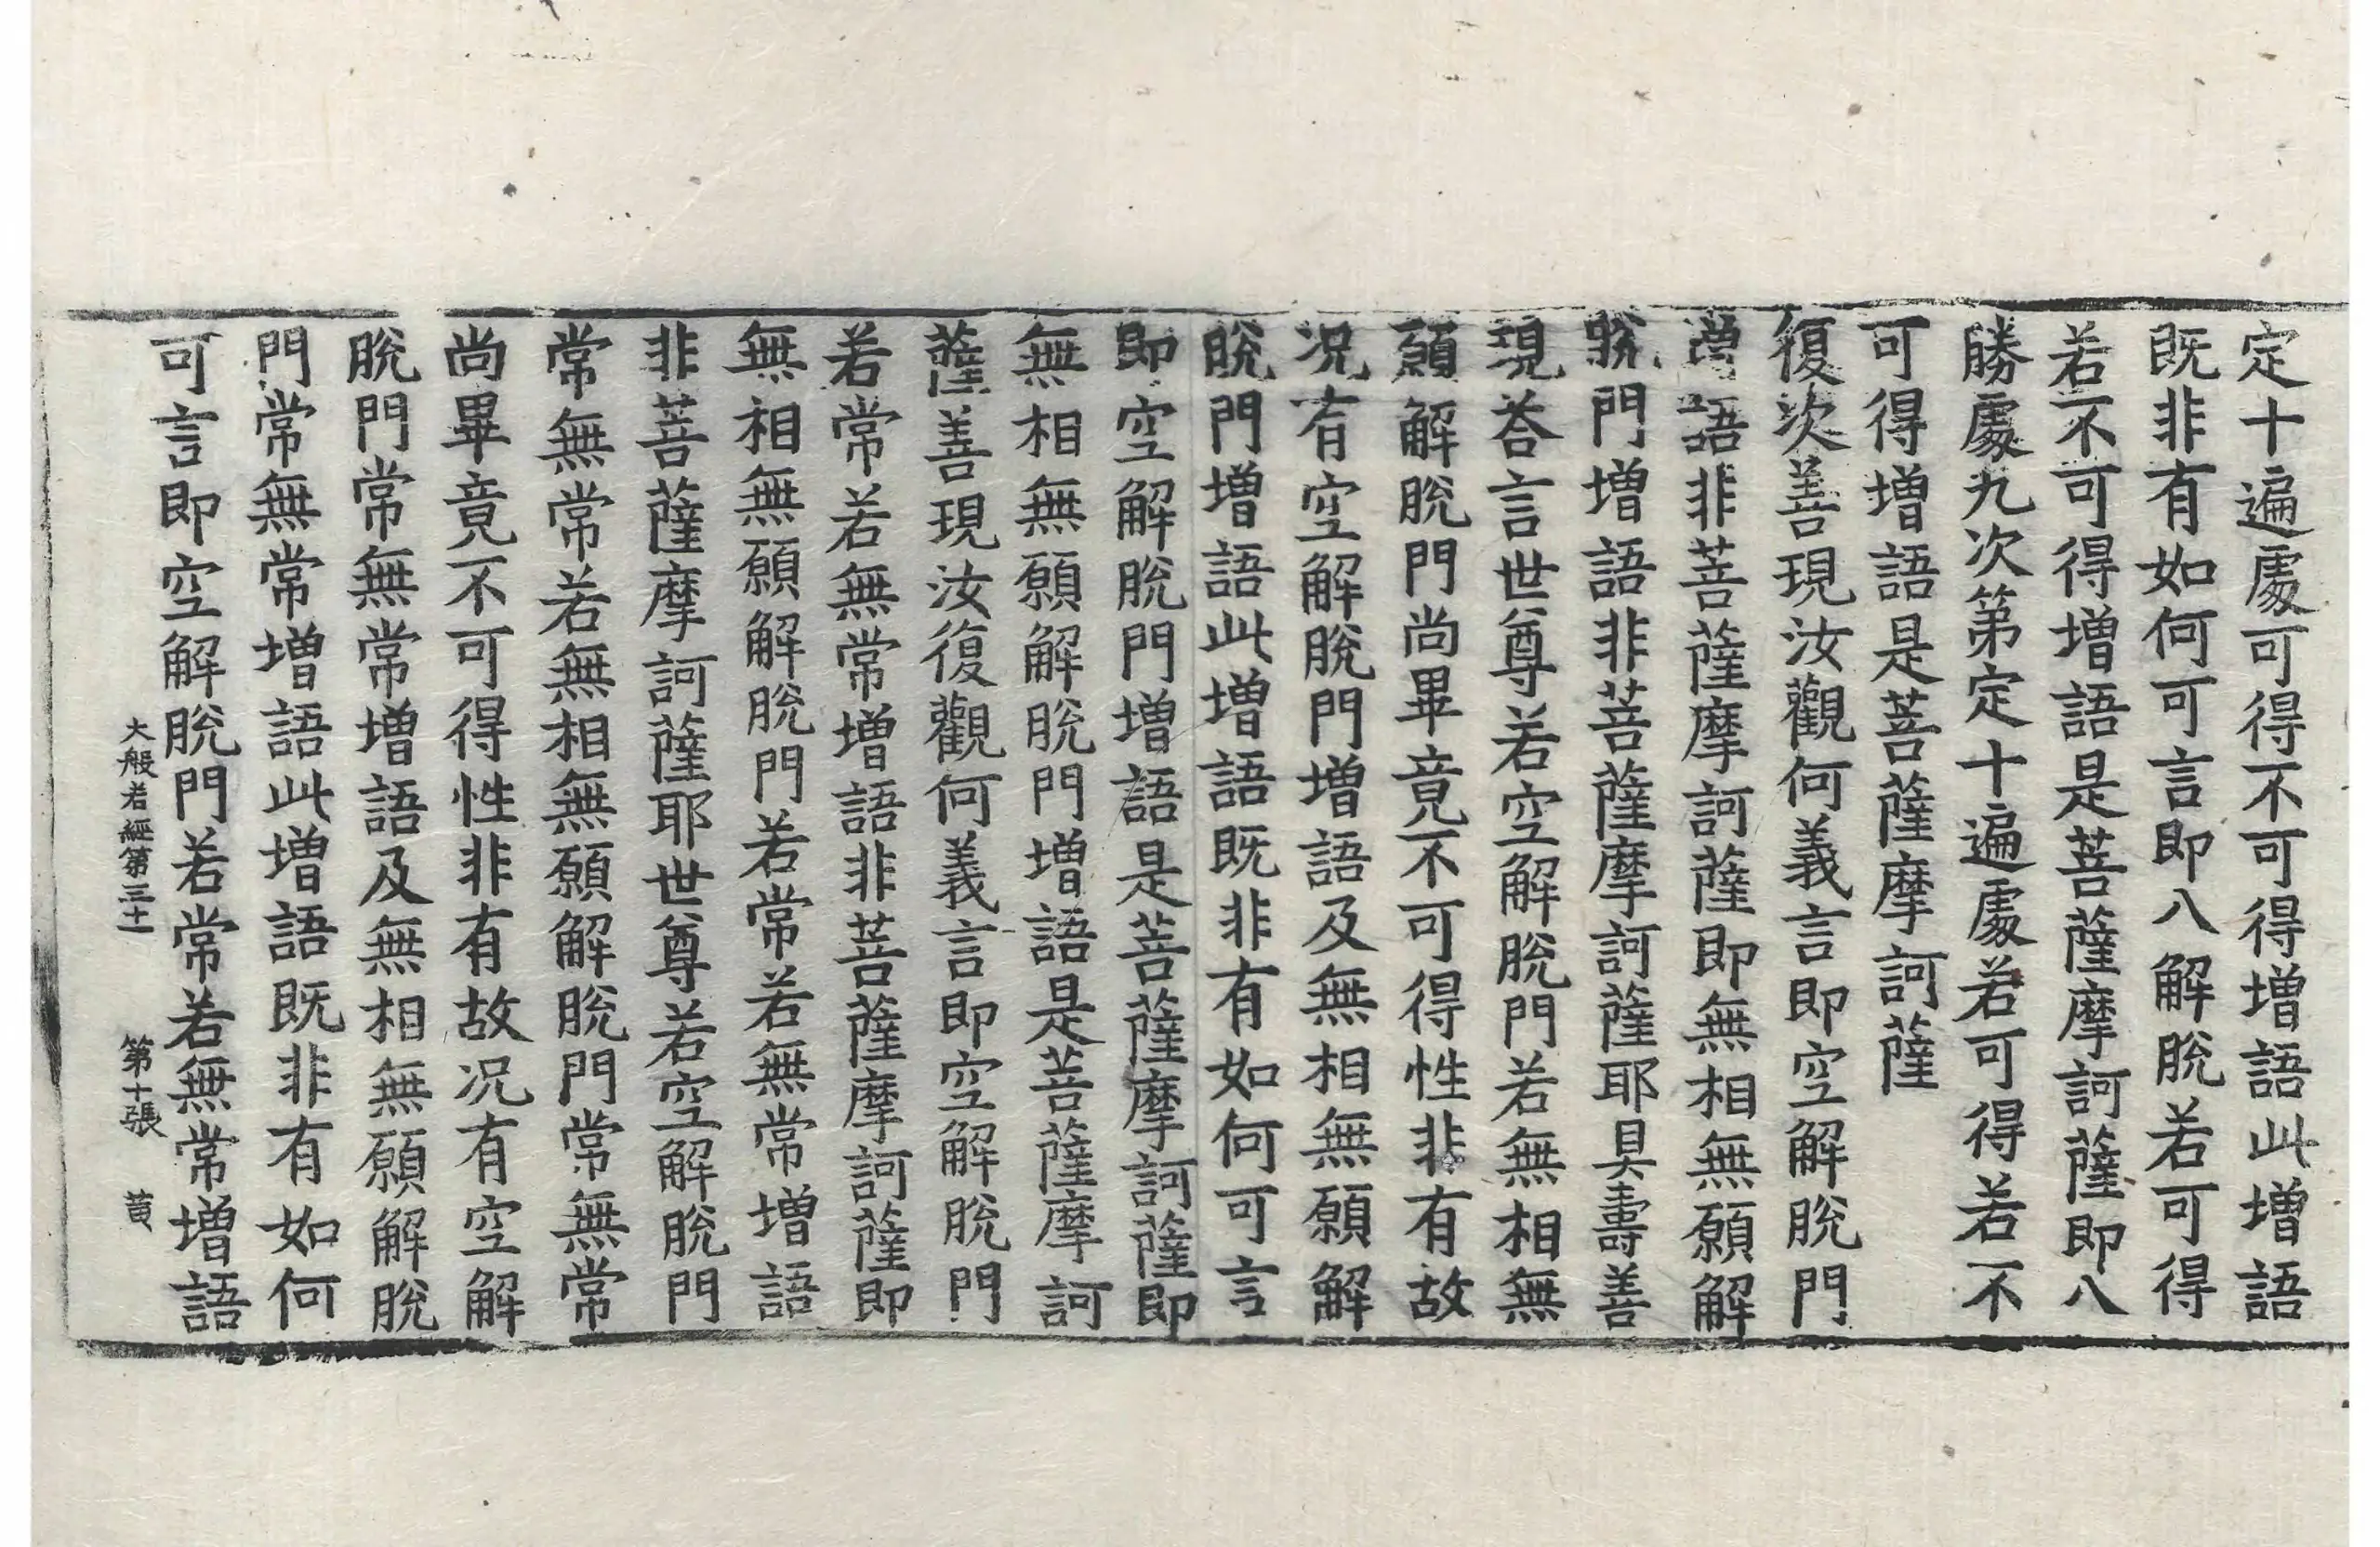 定十遍處可得不可得增語此增語
既非有如何可言即八解脫若可得
若不可得增語是菩薩摩訶薩即八
勝處九次第定十遍處若可得若不
可得增語是菩薩摩訶薩
復次善現汝觀何義言即空解脫門
增語非菩薩摩訶薩即無相無願解
脫門增語非菩薩摩訶薩耶具壽善
現荅言世尊若空解脫門若無相無
願解脫門尚畢竟不可得性非有故
况有空解脫門增語及無相無願解
脫門增語此增語既非有如何可言
即空解脫門增語是菩薩摩訶薩即
無相無願解脫門增語是菩薩摩訶
薩善現汝復觀何義言即空解脫門
若常若無常增語非菩薩摩訶薩即
無相無願解脫門若常若無常增語
非菩薩摩訶薩耶世尊若空解脫門
常無常若無相無願解脫門常無常
尚畢竟不可得性非有故况有空解
脫門常無常增語及無相無願解脫
門常無常增語此增語既非有如何
可言即空解脫門若常若無常增語
大般若經第三十 第十張 黄